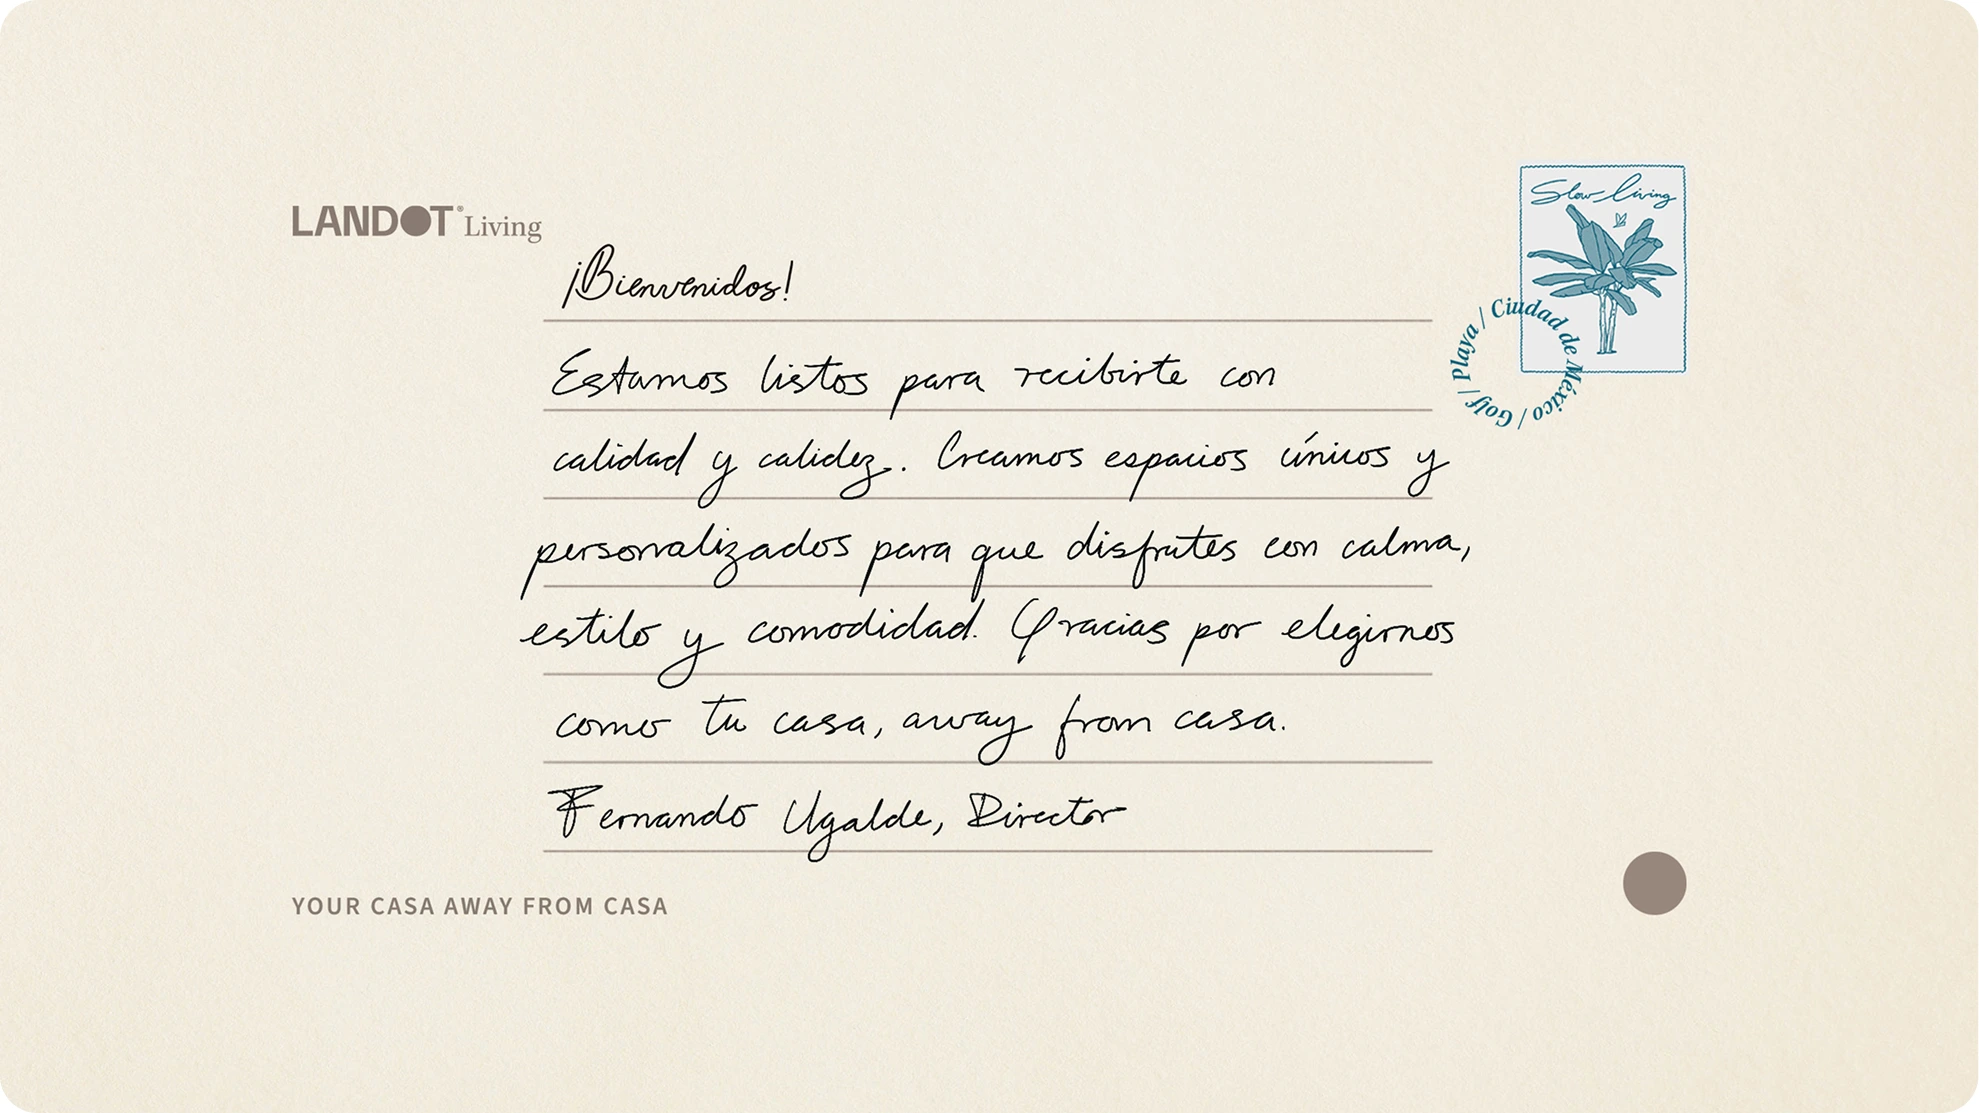 LANDOT® Living
Slow living
Ciudad de México / Golf / Playa /
¡Bienvenidos!
Estamos listos para recibirte con
calidad y calidez. Creamos espacios únicos y
personalizados para que disfrutes con calma,
estilo y comodidad. Gracias por elegirnos
como tu casa, away from casa.
Fernando Ugalde, Director
YOUR CASA AWAY FROM CASA